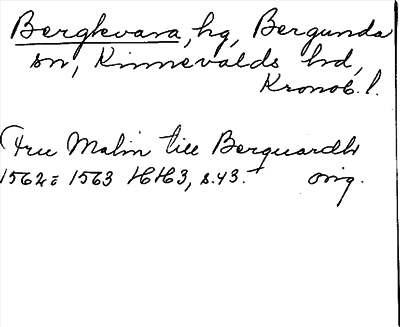 Bergkvara, hg, Bergunda
sn, Kinnevalds hd,
Kronob. l.
Fru Malin till Berquardh
1562 = 1563 HH3, s. 43. orig.